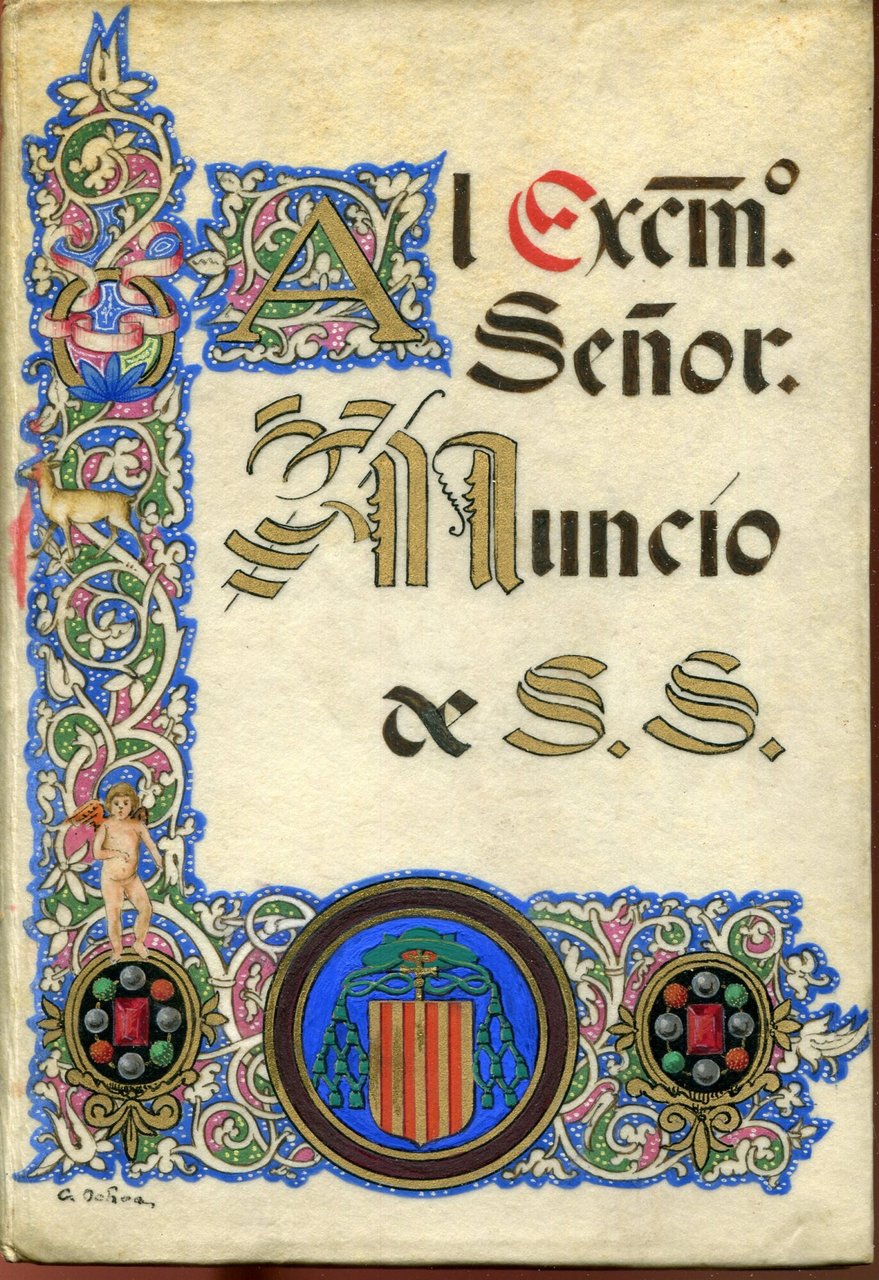 Al Excm̄º.
Señor.
Nuncio
de S. S.
C. Ochoa